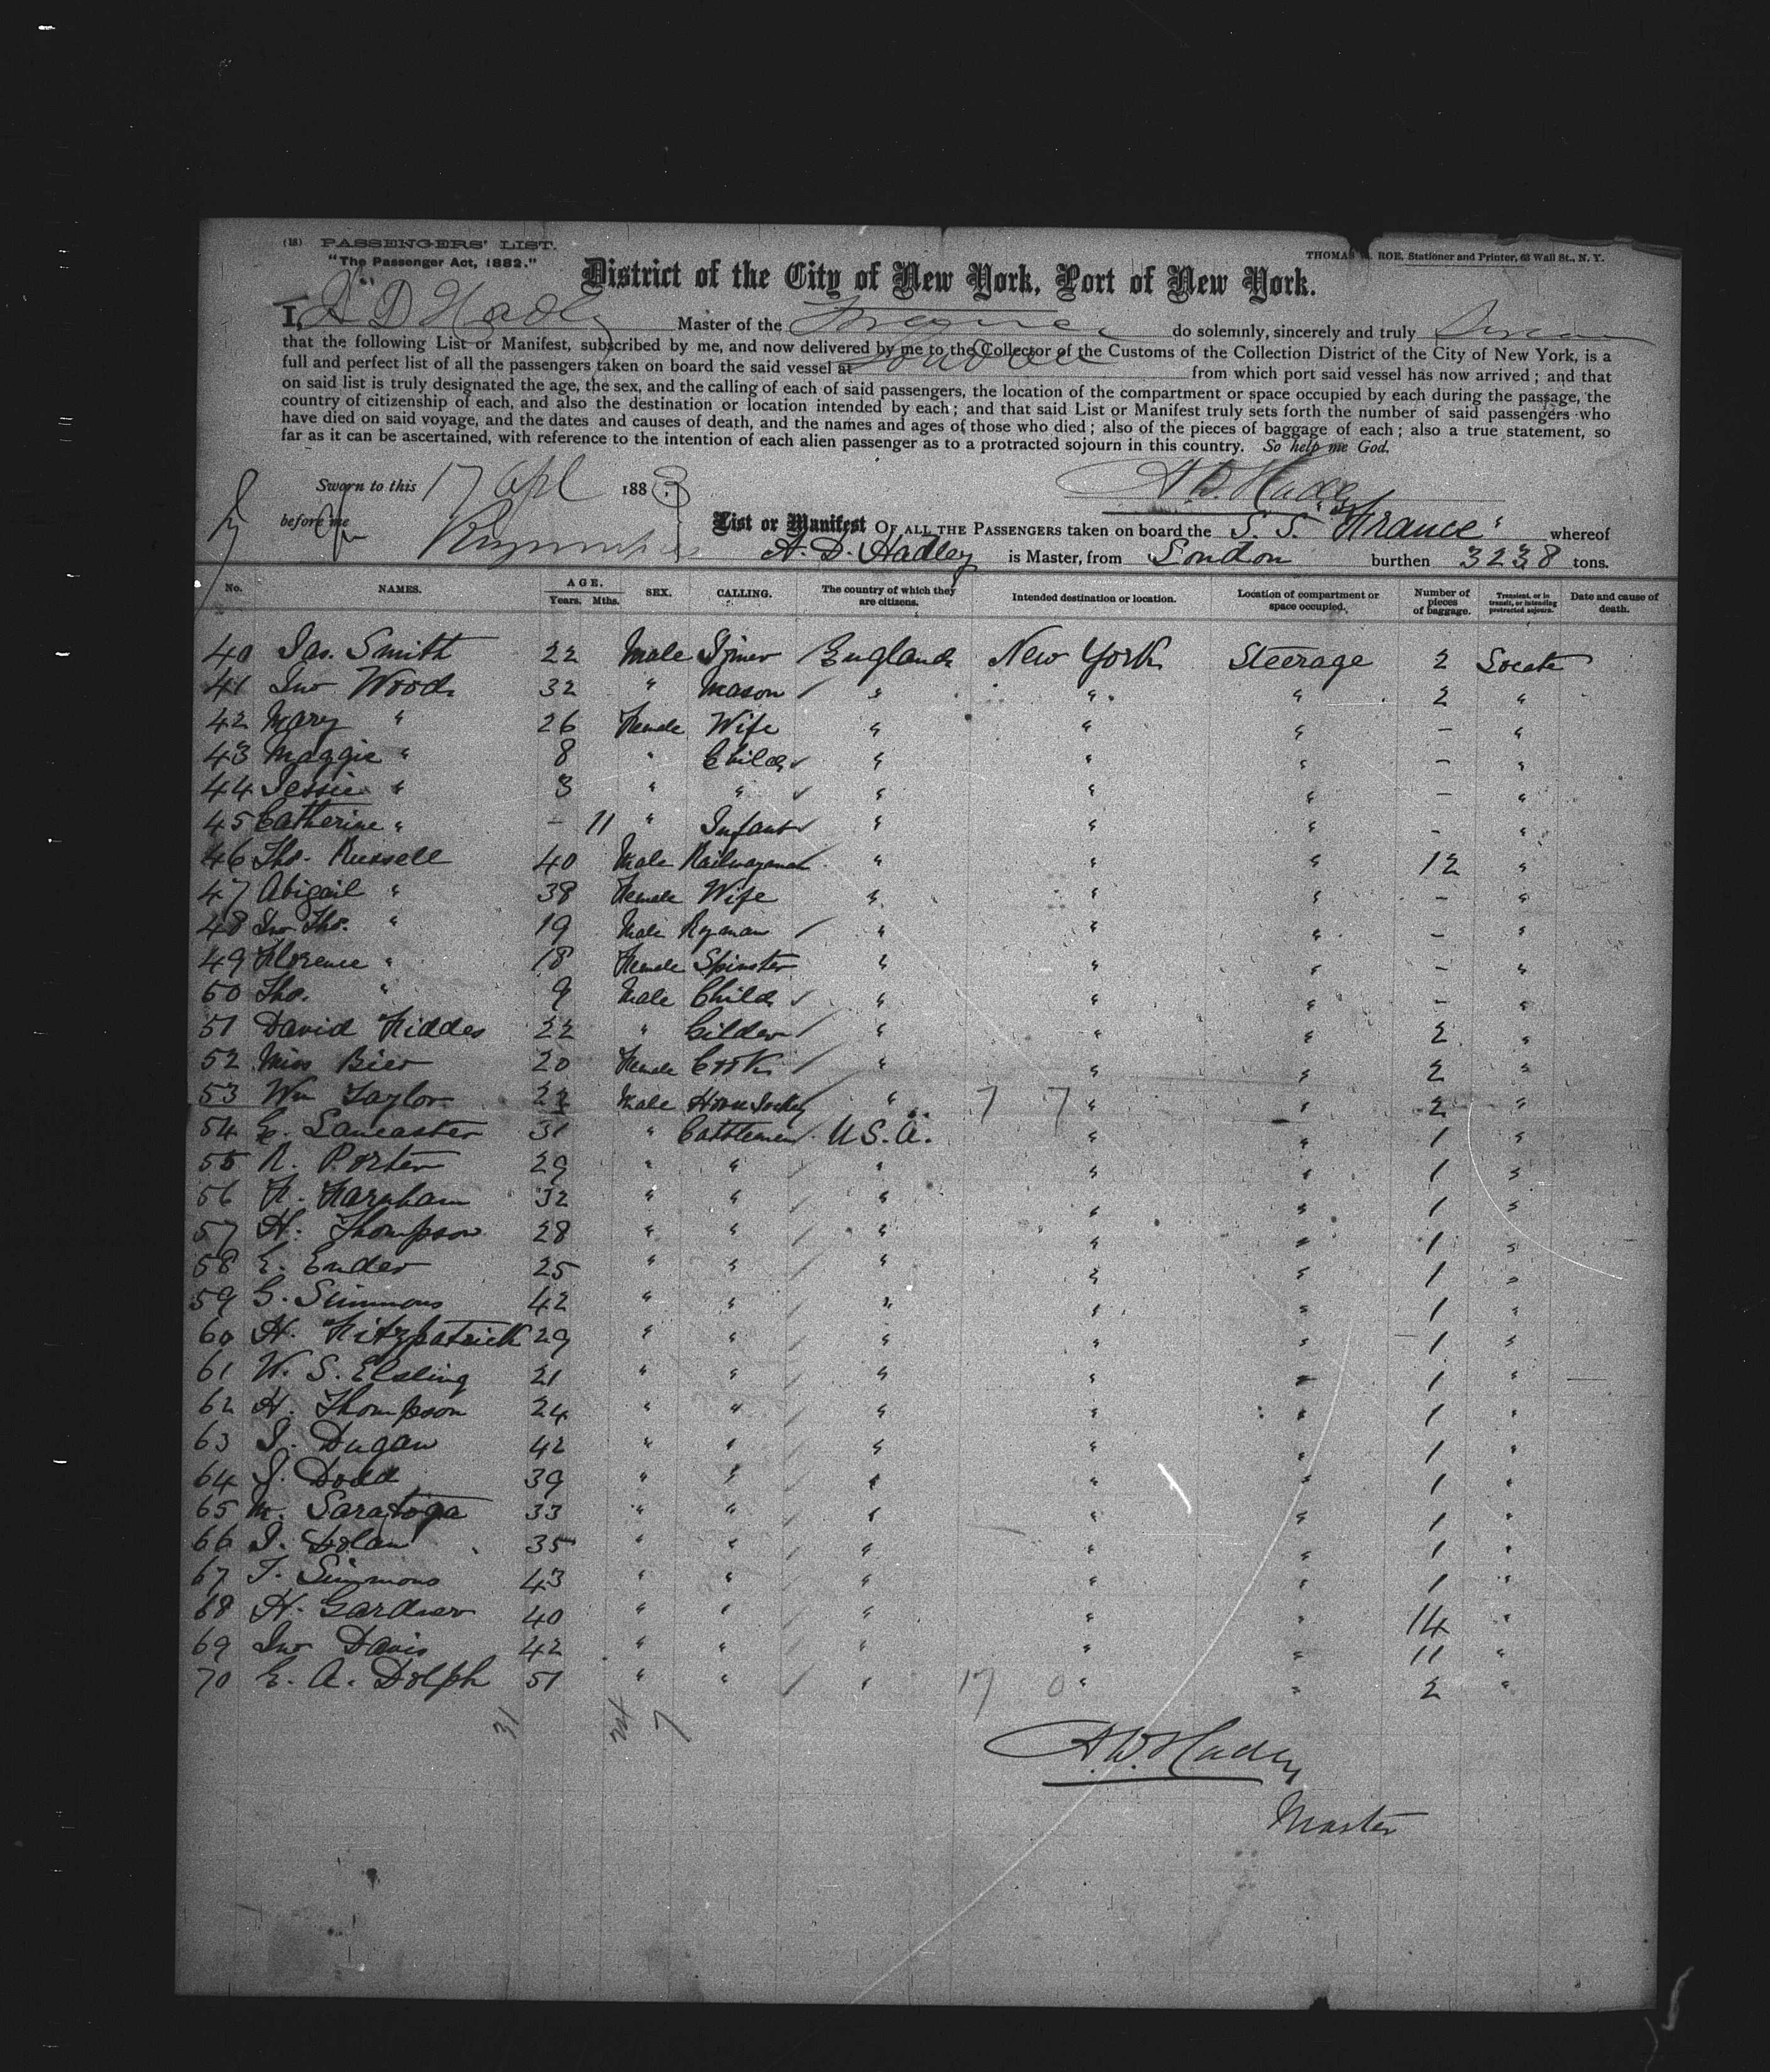 (18) PASSENGERS' LIST.
"The Passenger Act, 1882."
THOMAS ROE, Stationer and Printer, 63 Wall St., N. Y.
District of the City of New York, Port of New York.
I, A D Hadley Master of the France do solemnly, sincerely and truly Swear
that the following List or Manifest, subscribed by me, and now delivered by me to the Collector of the Customs of the Collection District of the City of New York, is a
full and perfect list of all the passengers taken on board the said vessel at London from which port said vessel has now arrived; and that
on said list is truly designated the age, the sex, and the calling of each of said passengers, the location of the compartment or space occupied by each during the passage, the
country of citizenship of each, and also the destination or location intended by each; and that said List or Manifest truly sets forth the number of said passengers who
have died on said voyage, and the dates and causes of death, and the names and ages of those who died; also of the pieces of baggage of each; also a true statement, so
far as it can be ascertained, with reference to the intention of each alien passenger as to a protracted sojourn in this country. So help me God.
Sworn to this 17 Apl 1883 A. D. Hadley
before me
List or Manifest OF ALL THE PASSENGERS taken on board the S. S. "France" whereof
A. D. Hadley is Master, from London burthen 3238 tons.
No. NAMES. AGE. Years. Mths. SEX. CALLING. The country of which they are citizens. Intended destination or location. Location of compartment or space occupied. Number of pieces of baggage. Transient, or in transit, or intending protracted sojourn. Date and cause of death.
40 Jas. Smith 22 Male England New York Steerage 2 Locate
41 Jno Wood 32 " Mason " " " 2 "
42 Mary " 26 Female Wife " " " - "
43 Maggie " 8 " Child " " " - "
44 Jessie " 3 " " " " " - "
45 Catherine " - 11 " Infant " " " - "
46 Tho. Russell 40 Male Railwayman " " " 12 "
47 Abigail " 38 Female Wife " " " - "
48 Jno Tho. " 19 Male Ryman " " " - "
49 Florence " 18 Female Spinster " " " - "
50 Tho. " 9 Male Child " " " - "
51 David Fiddes 22 " Gilder " " " 2 "
52 Miss Bier 20 Female Cook " " " 2 "
53 Wm Taylor 22 Male Horse Jockey " 7 7 " " 2 "
54 E. Lancaster 31 " Cattlemen U.S.A. " " 1 "
55 R. Porter 29 " " " " " 1 "
56 F. Farnham 32 " " " " " 1 "
57 H. Thompson 28 " " " " " 1 "
58 E. Ender 25 " " " " " 1 "
59 G. Simmons 42 " " " " " 1 "
60 H. Fitzpatrick 29 " " " " " 1 "
61 W. S. Elsling 21 " " " " " 1 "
62 H. Thompson 24 " " " " " 1 "
63 J. Dugan 42 " " " " " 1 "
64 J. Dodd 39 " " " " " 1 "
65 M. Saratoga 33 " " " " " 1 "
66 J. Dolan 35 " " " " " 1 "
67 T. Simmons 43 " " " " " 1 "
68 H. Gardner 40 " " " " " 14 "
69 Jno Davis 42 " " " " " 11 "
70 E. A. Dolph 51 " " " 17 0 " " 2 "
31 24 7
A. D. Hadley
Master